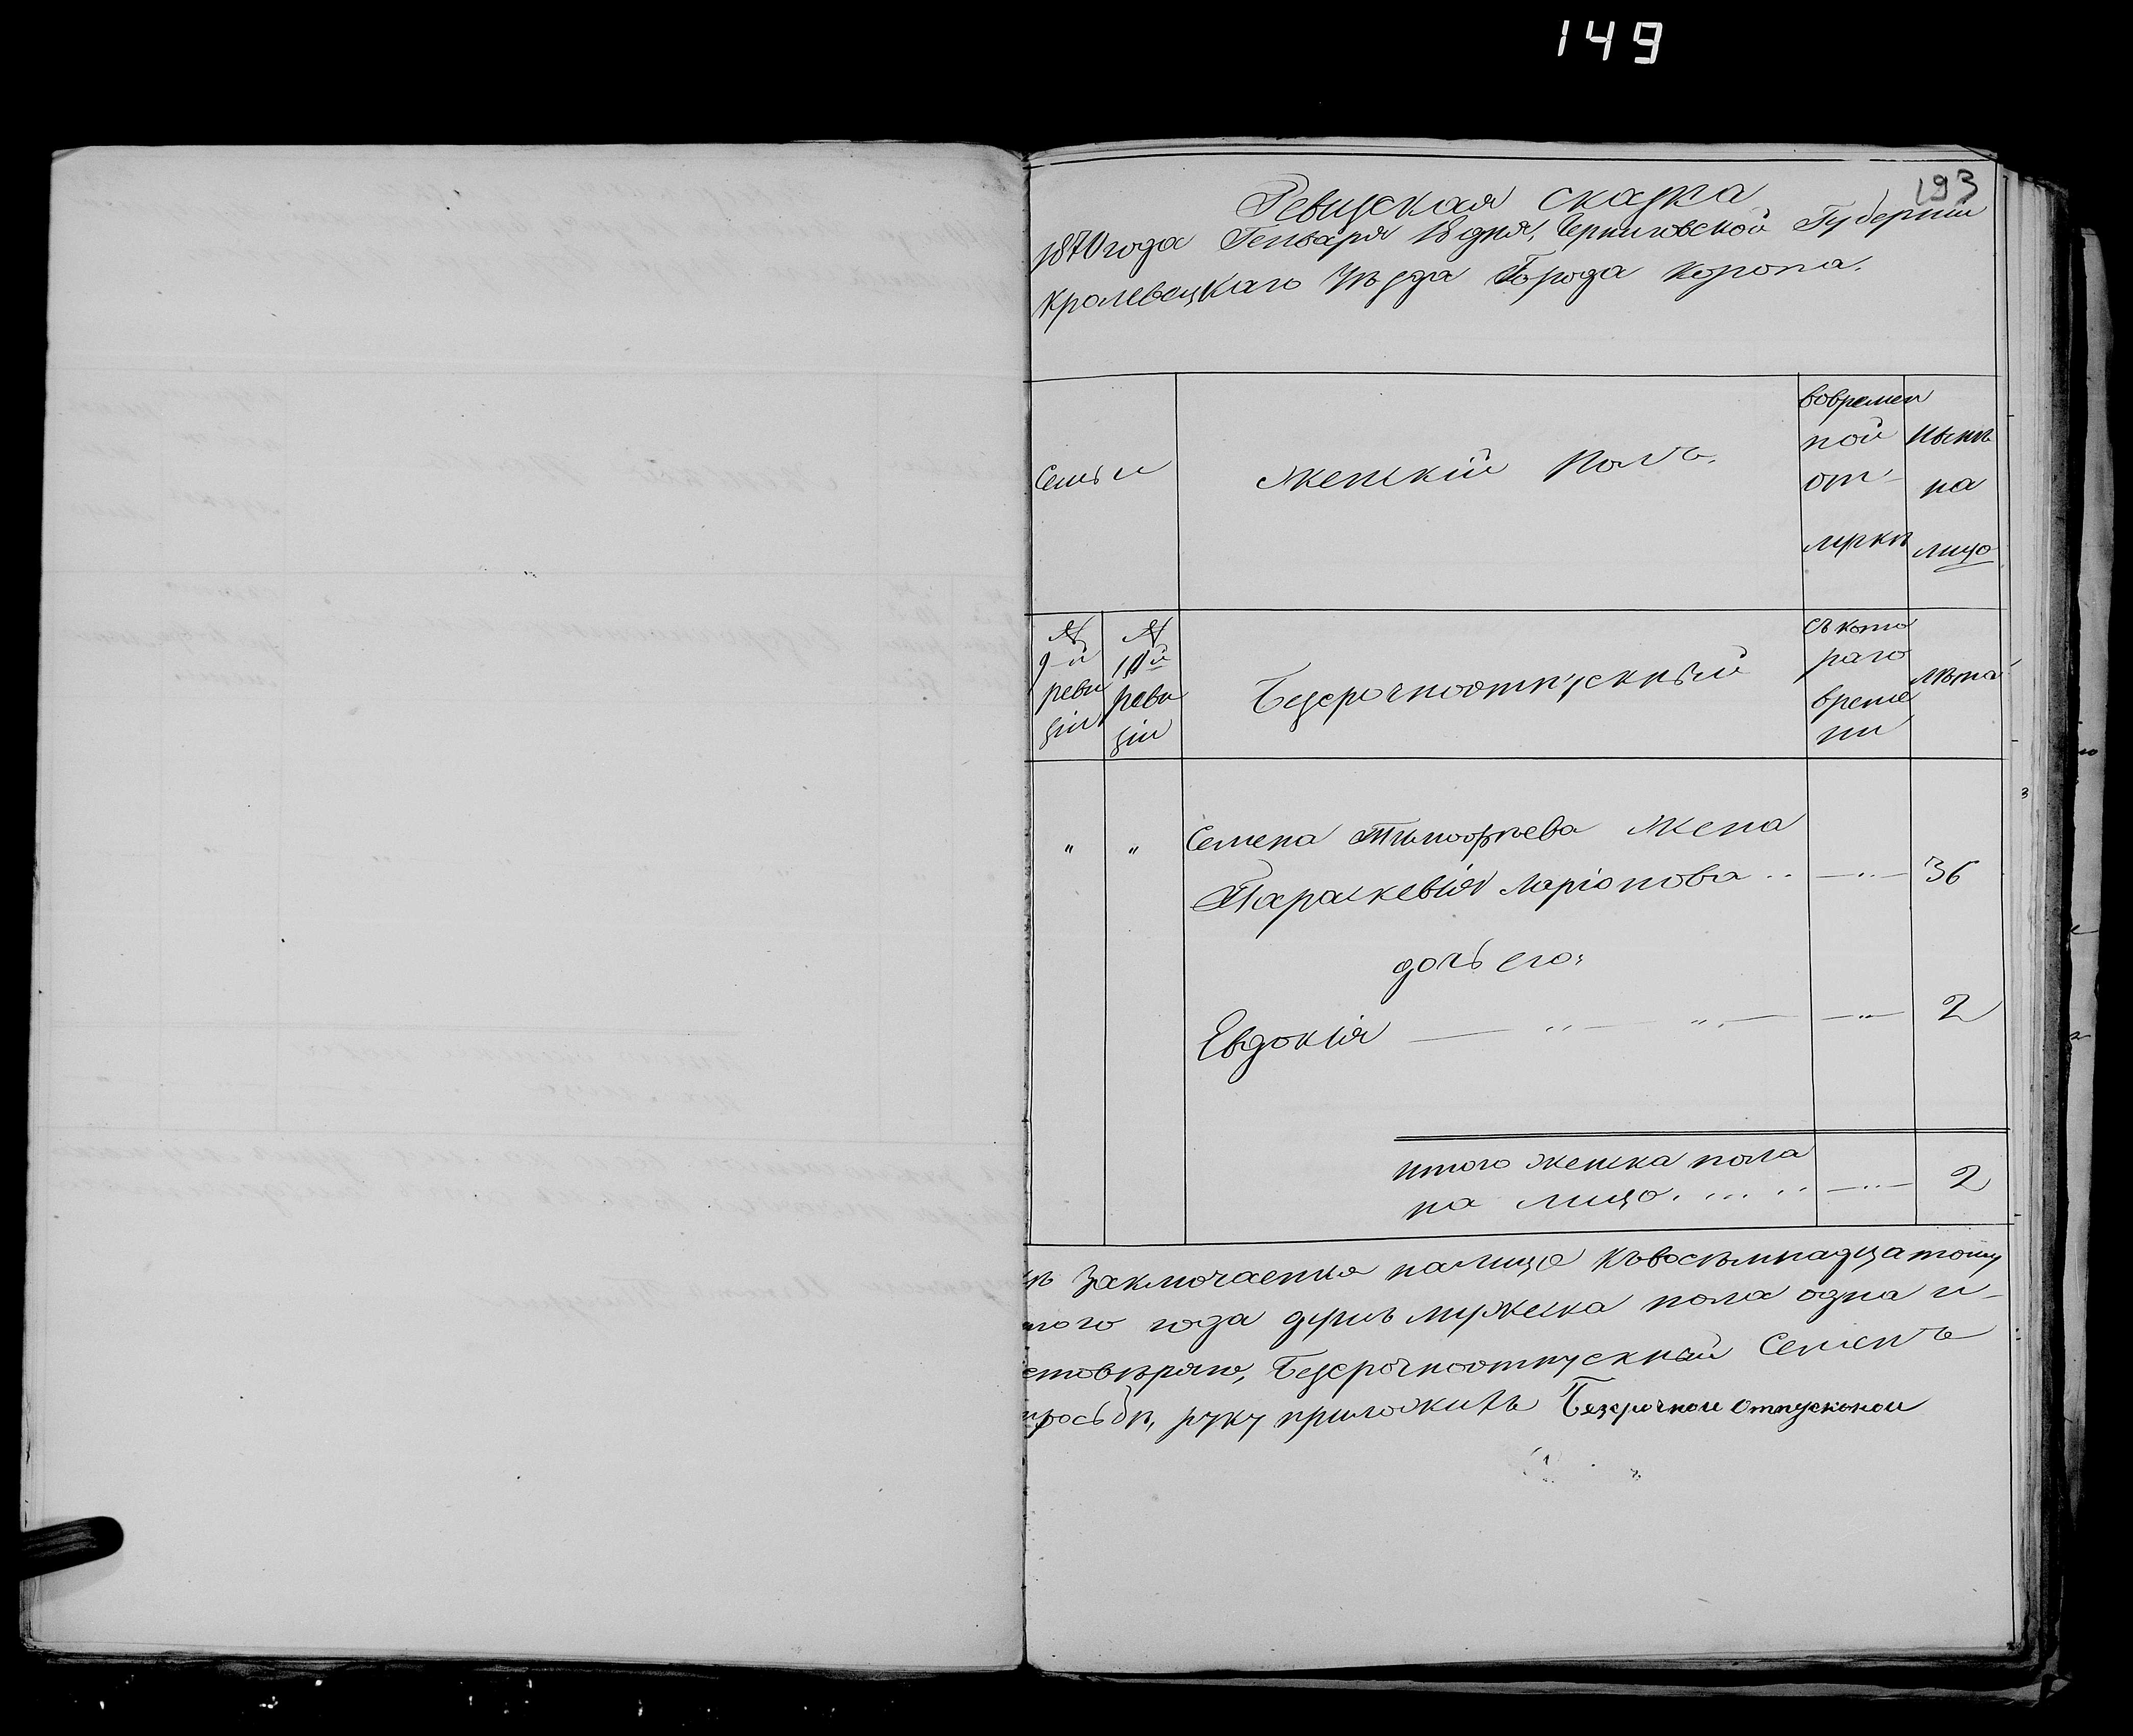 149
193
Ревизская сказка
1870 года Генваря 18 дня, Черниговской Губернии
Кролевецкаго Уѣзда Города Коропа.
Семьи
Женскій Полъ.
вовремен
ной
от
лучкѣ
нынѣ
на
лицо
№
9-й
реви
зіи
№
10й
реви
зіи
Безсрочноотпускный
съ кото
раго
време
ни
лѣта
" " Семена Тимофѣева Жена
Параскевія Ларіонова .. —"— 36
дочь его:
Евдокія — " — " — —"— 2
итого женска пола
на лицо. ... .. —"— 2
ѣ заключается налицо къ восѣмнадцатому
года душъ мужеска пола одна и
стовѣряю, Безсрочноотпускный Семенъ
просьбѣ, руку приложилъ Безсрочной Отпускной